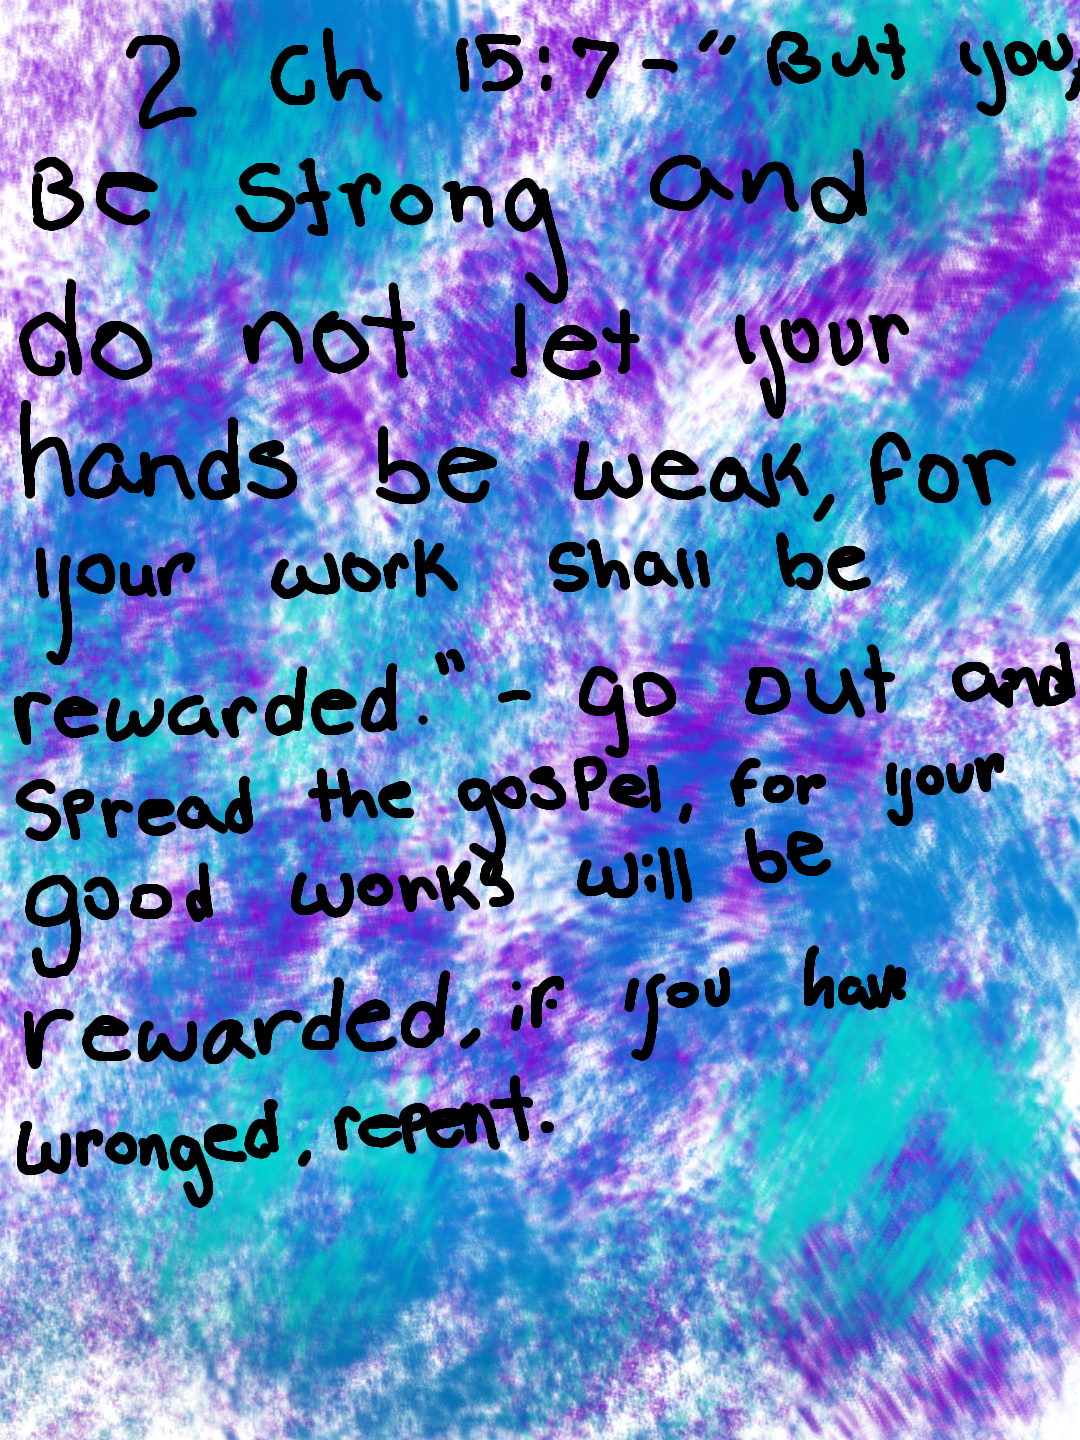 2 Ch 15:7 - "But you,
Be strong and
do not let your
hands be weak, for
your work shall be
rewarded." - go out and
spread the gospel, for your
good works will be
rewarded, if you have
wronged, repent.